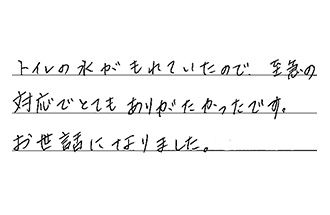 トイレの水がもれていたので、至急の
対応でとてもありがたかったです。
お世話になりました。